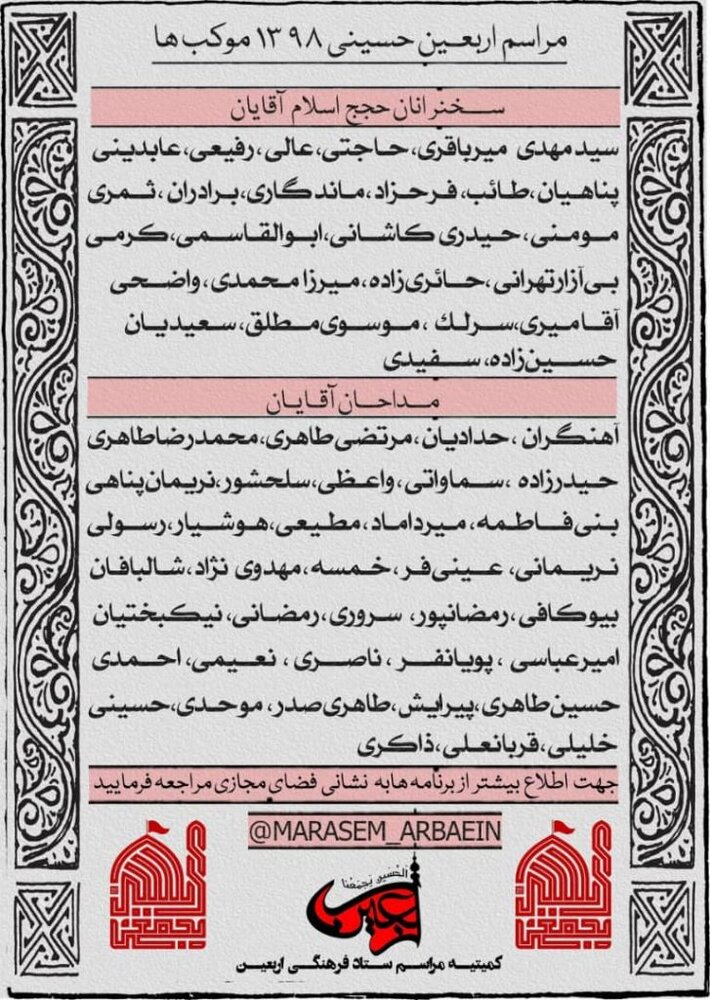 مراسم اربعین حسینی ۱۳۹۸ موکب ها
سخنرانان حجج اسلام آقایان
سید مهدی میرباقری، حاجتی، عالی، رفیعی، عابدینی
پناهیان، طائب، فرحزاد، ماندگاری، برادران، ثمری
مومنی، حیدری کاشانی، ابوالقاسمی، کرمی
بی‌آزارتهرانی، حائری‌زاده، میرزا محمدی، واضحی
آقامیری، سرلك، موسوی‌مطلق، سعیدیان
حسین‌زاده، سفیدی
مداحان آقایان
آهنگران، حدادیان، مرتضی طاهری، محمدرضا طاهری
حیدرزاده، سماواتی، واعظی، سلحشور، نریمان‌پناهی
بنی‌فاطمه، میرداماد، مطیعی، هوشیار، رسولی
نریمانی، عینی‌فر، خمسه، مهدوی نژاد، شالبافان
بیوکافی، رمضانپور، سروری، رمضانی، نیکبختیان
امیرعباسی، پویانفر، ناصری، نعیمی، احمدی
حسین طاهری، پیرایش، طاهری صدر، موحدی، حسینی
خلیلی، قربانعلی، ذاکری
جهت اطلاع بیشتر از برنامه ها به نشانی فضای مجازی مراجعه فرمایید
@MARASEM_ARBAEIN
الحسین یجمعنا
اربعین
کمیتیه مراسم ستاد فرهنگی اربعین